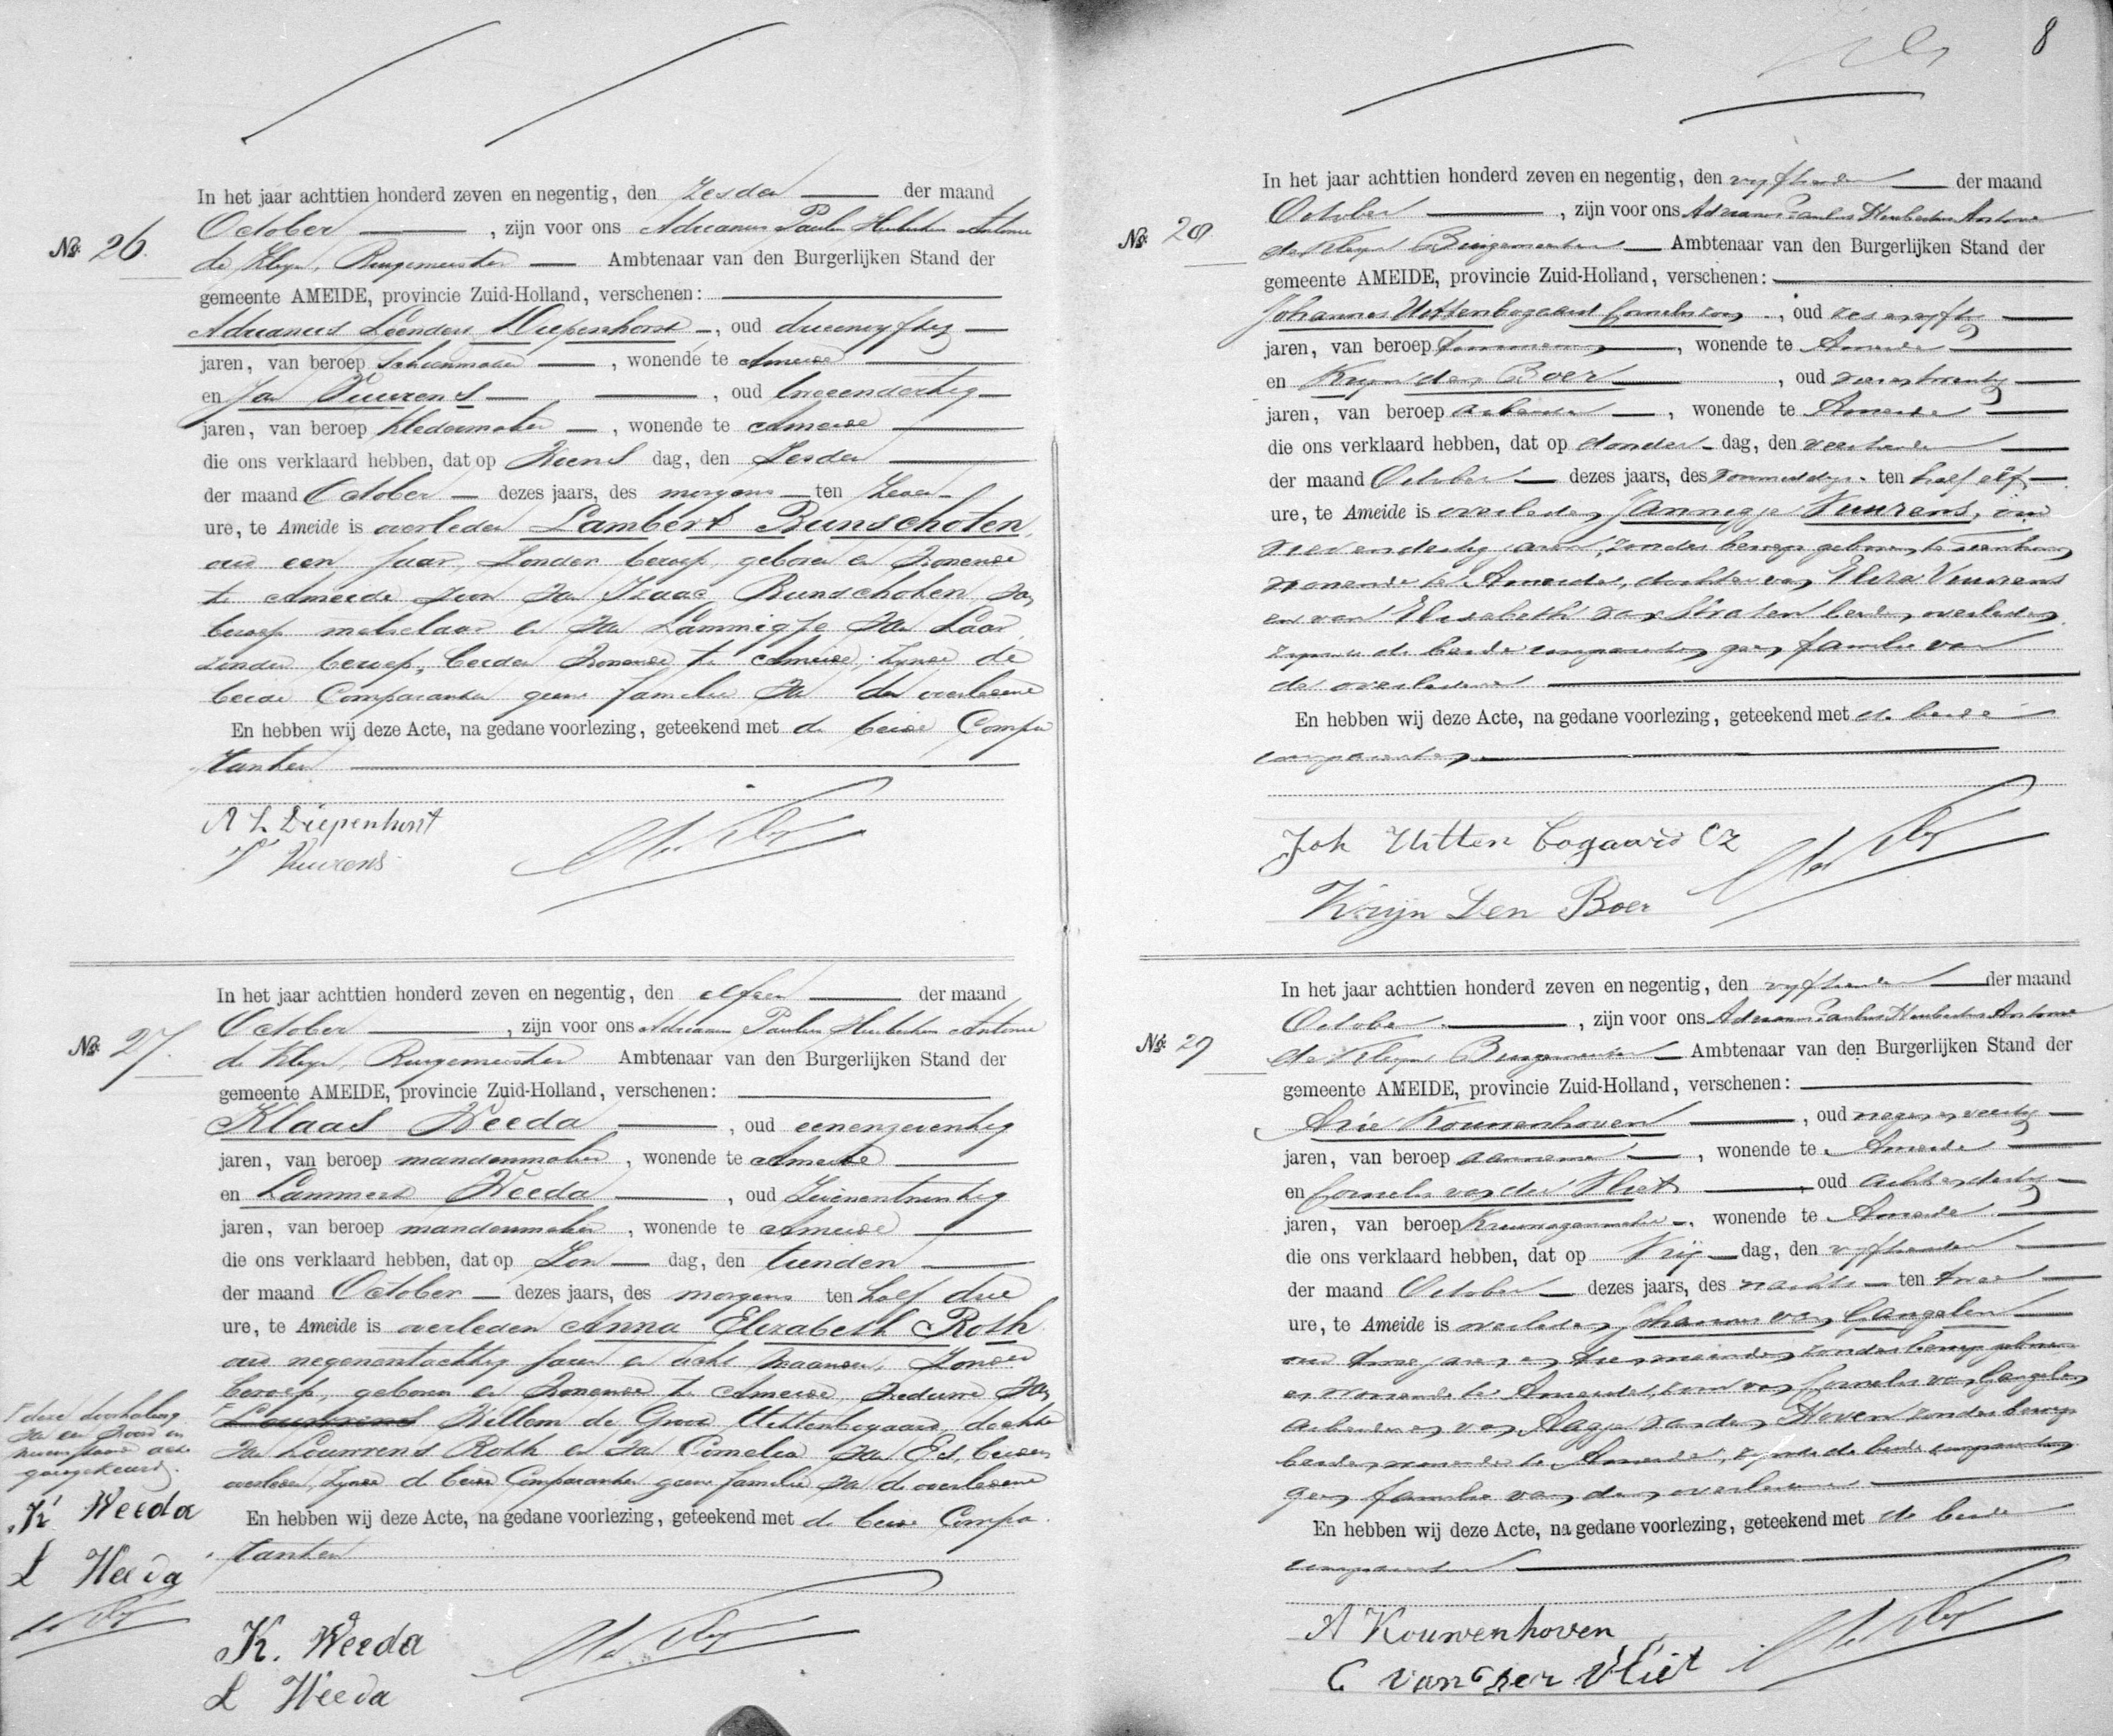 8
No. 26.
In het jaar achttien honderd zeven en negentig, den zesden der maand
October, zijn voor ons Adrianus Paulus Huibertus Antonie
de Kleyn, Burgemeester Ambtenaar van den Burgerlijken Stand der
gemeente AMEIDE, provincie Zuid-Holland, verschenen:
Adrianus Leendert Diepenhorst, oud drieenvyftig
jaren, van beroep schoenmaker, wonende te Ameide
en Jan Vuurens, oud tweeendertig
jaren, van beroep kledermaker, wonende te Ameide
die ons verklaard hebben, dat op Woens dag, den zesden
der maand October dezes jaars, des morgens ten zeven
ure, te Ameide is overleden Lambert Bunschoten,
oud een jaar, zonder beroep, geboren en wonende
te Ameide zoon van Izaac Bunschoten van
beroep metselaar en van Lammigje van Laar
zonder beroep, beiden wonende te Ameide, zynde de
beide Comparanten geene familie van den overledene
En hebben wij deze Acte, na gedane voorlezing, geteekend met de beide Compa
ranten
A L Diepenhorst
J Vuurens
No. 27.
In het jaar achttien honderd zeven en negentig, den elfden der maand
October, zijn voor ons Adrianus Paulus Huibertus Antonie
de Kleyn, Burgemeester Ambtenaar van den Burgerlijken Stand der
gemeente AMEIDE, provincie Zuid-Holland, verschenen:
Klaas Weeda, oud eenenzeventig
jaren, van beroep mandenmaker, wonende te Ameide
en Lammert Weeda, oud zevenentwintig
jaren, van beroep mandenmaker, wonende te Ameide
die ons verklaard hebben, dat op Zon dag, den tienden
der maand October dezes jaars, des morgens ten half drie
ure, te Ameide is overleden Anna Elizabeth Roth
oud negenentachtig jaren en acht maanden, zonder
beroep, geboren en wonende te Ameide, weduwe van
Louwrens Willem de Groot Uittenbogaard, dochter
van Louwrens Roth en van Cornelia van Es, beiden
overleden, zynde de beide Comparanten geene familie van de overledene
En hebben wij deze Acte, na gedane voorlezing, geteekend met de beide Compa
ranten
deze doorhaling
van een woord in
nevenstaande acte
goedgekeurd.
K Weeda
L Weeda
K. Weeda
L Weeda
No. 28
In het jaar achttien honderd zeven en negentig, den vyftienden der maand
October, zijn voor ons Adrianus Paulus Huibertus Antonie
de Kleyn Burgemeester Ambtenaar van den Burgerlijken Stand der
gemeente AMEIDE, provincie Zuid-Holland, verschenen:
Johannes Uittenbogaard Corneliszoon, oud zes en vyftig
jaren, van beroep, wonende te Ameide
en Kryn den Boer, oud twintig
jaren, van beroep arbeider, wonende te Ameide
die ons verklaard hebben, dat op donder dag, den veertienden
der maand October dezes jaars, des voormiddags ten half elf
ure, te Ameide is overleden Jannigje Vuurens, oud
dertig jaren, zonder beroep geboren te Tienhoven
wonende te Ameide, dochter van Vuurens
en van Elisabeth van Straten beiden overleden
zynde de beide comparanten geen familie van
de overledene
En hebben wij deze Acte, na gedane voorlezing, geteekend met de beide
comparanten
Joh Uittenbogaard Cz
Krijn Den Boer
No. 29
In het jaar achttien honderd zeven en negentig, den vyftienden der maand
October, zijn voor ons Adrianus Paulus Huibertus Antonie
de Kleyn Burgemeester Ambtenaar van den Burgerlijken Stand der
gemeente AMEIDE, provincie Zuid-Holland, verschenen:
Arie Kouwenhoven, oud negen en veertig
jaren, van beroep aannemer, wonende te Ameide
en Cornelis van der Vliet, oud achtendertig
jaren, van beroep, wonende te Ameide
die ons verklaard hebben, dat op Vrij dag, den vyftienden
der maand October dezes jaars, des nachts ten twee
ure, te Ameide is overleden Johannes van Gangelen
oud twee jaren en maanden, zonder beroep geboren
en wonende te Ameide, zoon van Cornelis van Gangelen
arbeider en van Aagje van der Hoven zonder beroep
beiden wonende te Ameide, zynde de beide comparanten
geen familie van den overledene
En hebben wij deze Acte, na gedane voorlezing, geteekend met de beide
comparanten
A Kouwenhoven
C van der Vliet